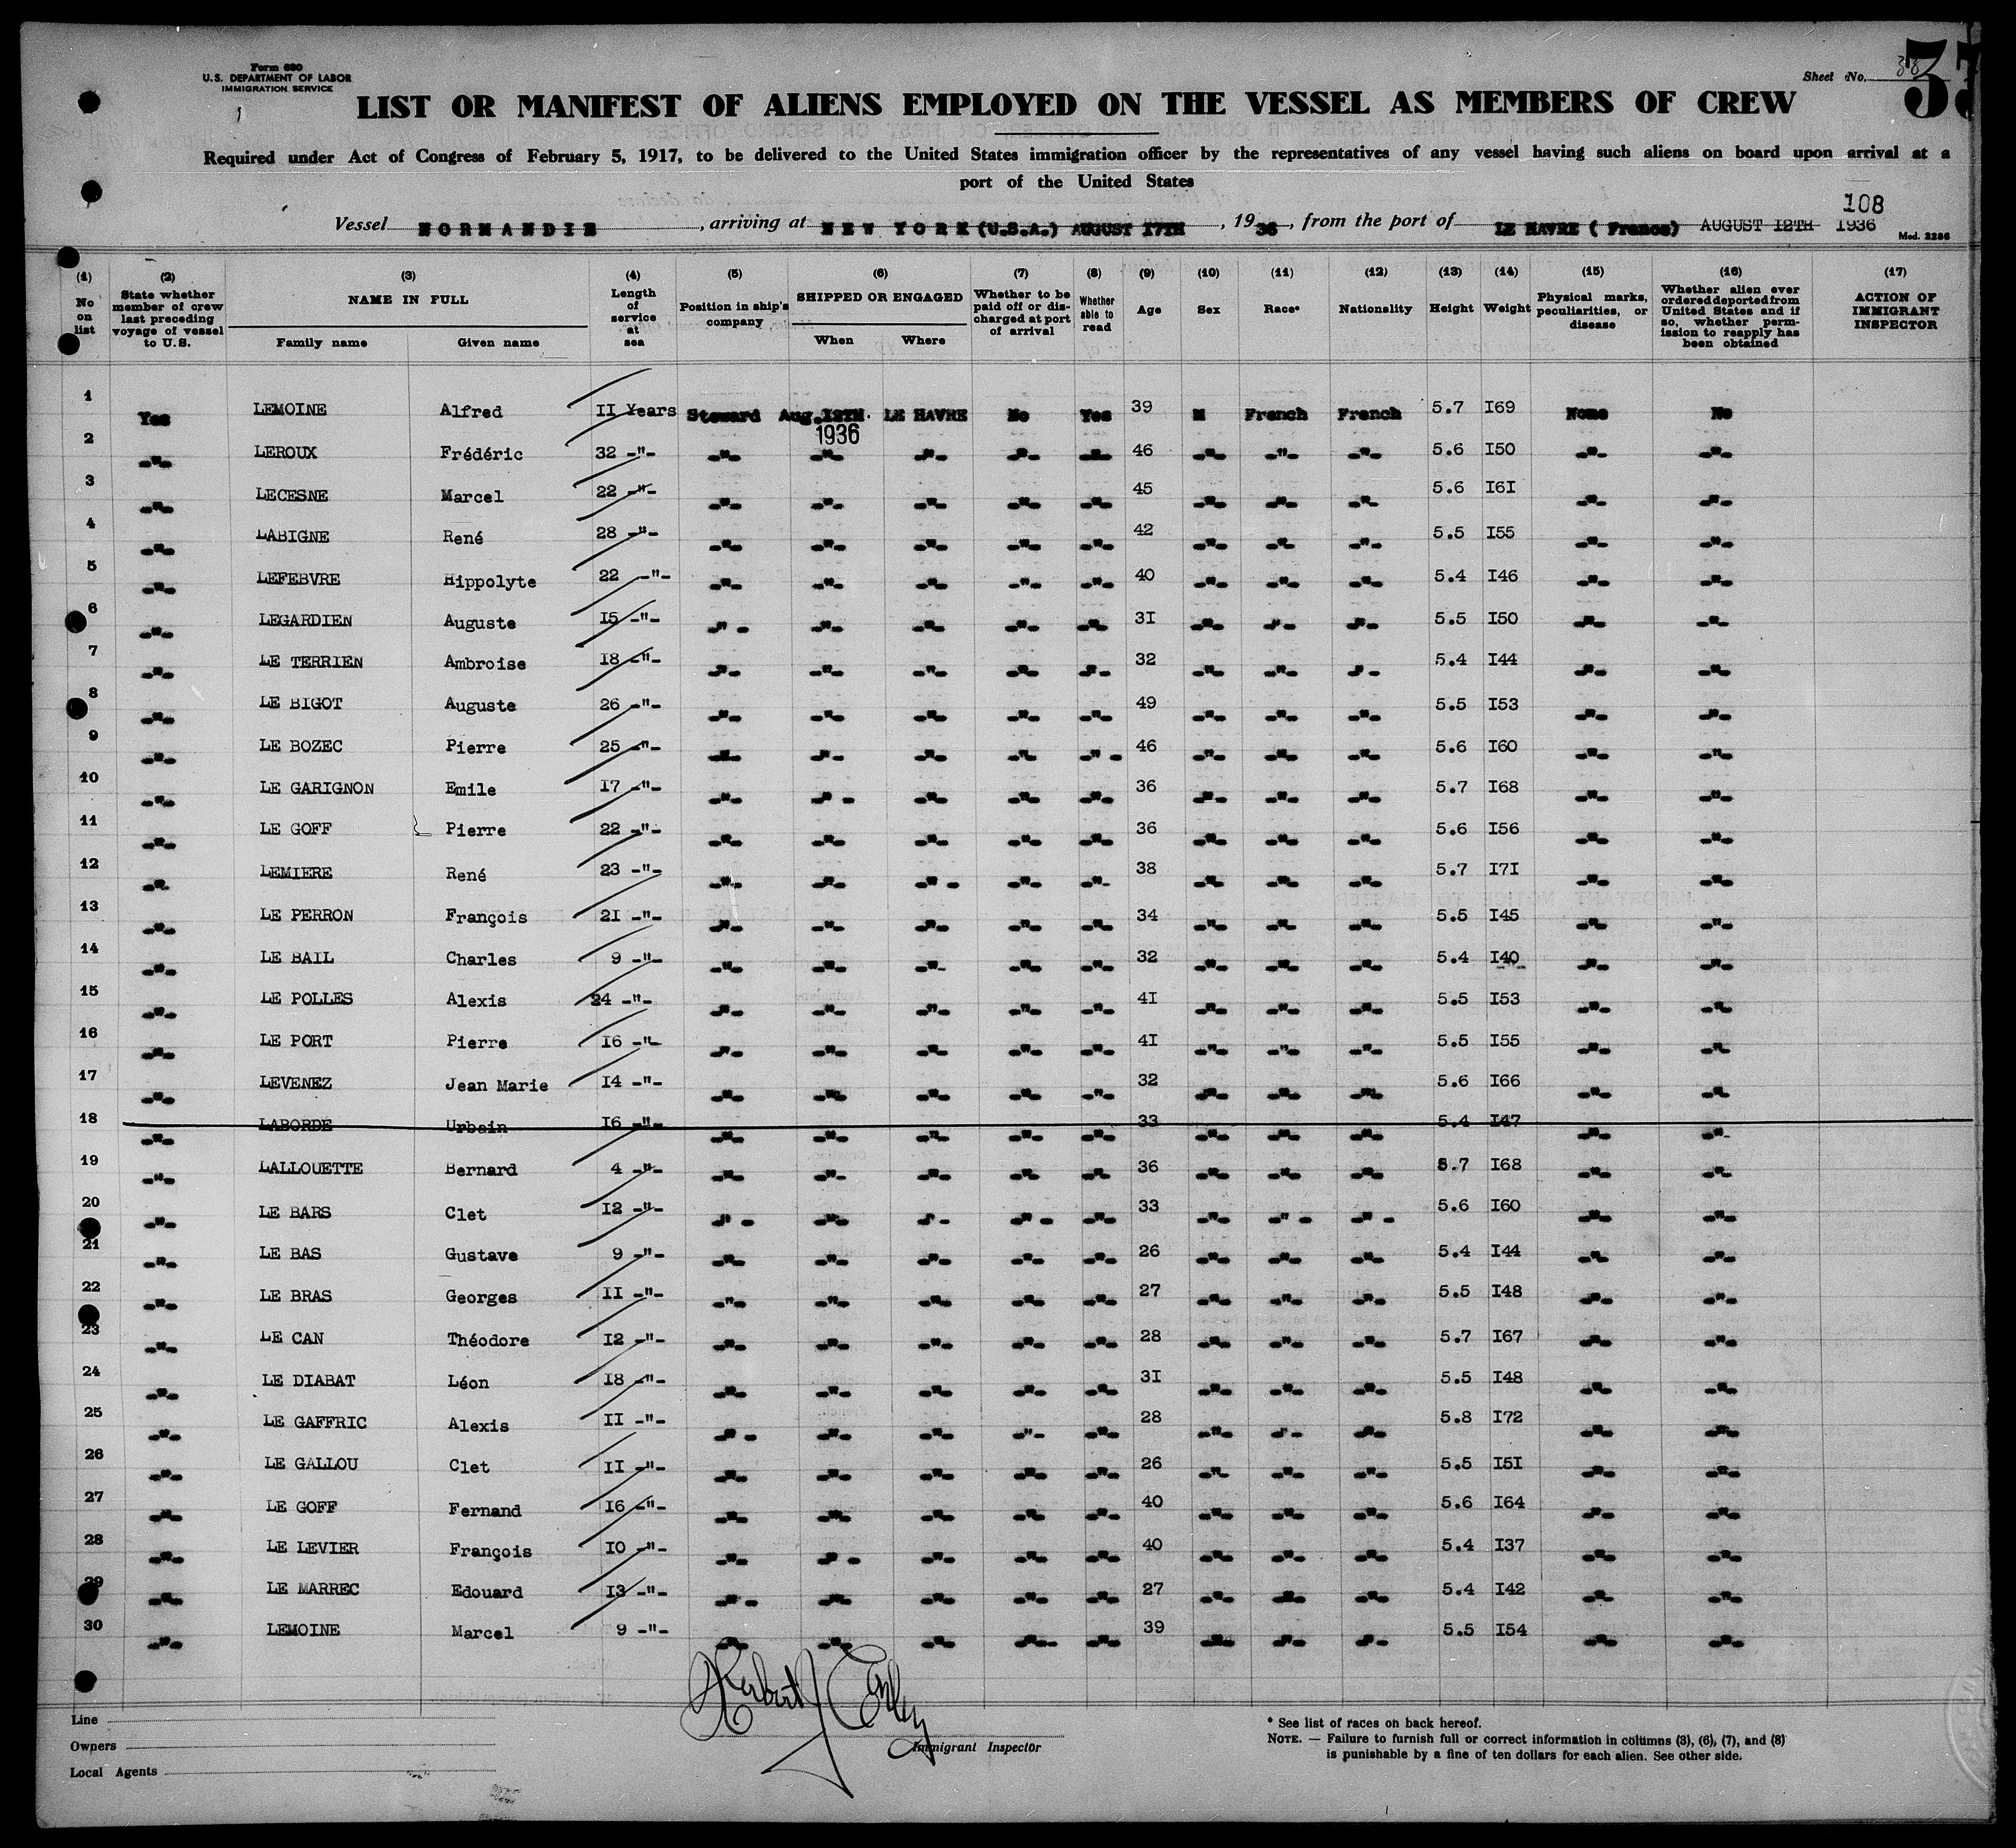 Form 680
U.S. DEPARTMENT OF LABOR
IMMIGRATION SERVICE
Sheet No. 38
LIST OR MANIFEST OF ALIENS EMPLOYED ON THE VESSEL AS MEMBERS OF CREW
Required under Act of Congress of February 5, 1917, to be delivered to the United States immigration officer by the representatives of any vessel having such aliens on board upon arrival at a
port of the United States
108
Vessel NORMANDIE, arriving at NEW YORK (U.S.A.) AUGUST 17TH, 1936, from the port of LE HAVRE ( France) AUGUST 12TH 1936
Mod. 2286
(1) (2) (3) (4) (5) (6) (7) (8) (9) (10) (11) (12) (13) (14) (15) (16) (17)
No on list State whether member of crew last preceding voyage of vessel to U.S. NAME IN FULL Family name Given name Length of service at sea Position in ship's company SHIPPED OR ENGAGED When Where Whether to be paid off or discharged at port of arrival Whether able to read Age Sex Race* Nationality Height Weight Physical marks, peculiarities, or disease Whether alien ever ordered deported from United States and if so, whether permission to reapply has been obtained ACTION OF IMMIGRANT INSPECTOR
1 Yes LEMOINE Alfred II Years Steward Aug.12TH. 1936 LE HAVRE No Yes 39 M French French 5.7 I69 None No
2 -"- LEROUX Frédéric 32 -"- -"- -"- -"- -"- -"- 46 -"- -"- -"- 5.6 I50 -"- -"-
3 -"- LECESNE Marcel 22 -"- -"- -"- -"- -"- -"- 45 -"- -"- -"- 5.6 I6I -"- -"-
4 -"- LABIGNE René 28 -"- -"- -"- -"- -"- -"- 42 -"- -"- -"- 5.5 I55 -"- -"-
5 -"- LEFEBVRE Hippolyte 22 -"- -"- -"- -"- -"- -"- 40 -"- -"- -"- 5.4 I46 -"- -"-
6 -"- LEGARDIEN Auguste I5 -"- -"- -"- -"- -"- -"- 3I -"- -"- -"- 5.5 I50 -"- -"-
7 -"- LE TERRIEN Ambroise I8 -"- -"- -"- -"- -"- -"- 32 -"- -"- -"- 5.4 I44 -"- -"-
8 -"- LE BIGOT Auguste 26 -"- -"- -"- -"- -"- -"- 49 -"- -"- -"- 5.5 I53 -"- -"-
9 -"- LE BOZEC Pierre 25 -"- -"- -"- -"- -"- -"- 46 -"- -"- -"- 5.6 I60 -"- -"-
10 -"- LE GARIGNON Emile I7 -"- -"- -"- -"- -"- -"- 36 -"- -"- -"- 5.7 I68 -"- -"-
11 -"- LE GOFF Pierre 22 -"- -"- -"- -"- -"- -"- 36 -"- -"- -"- 5.6 I56 -"- -"-
12 -"- LEMIERE René 23 -"- -"- -"- -"- -"- -"- 38 -"- -"- -"- 5.7 I7I -"- -"-
13 -"- LE PERRON François 2I -"- -"- -"- -"- -"- -"- 34 -"- -"- -"- 5.5 I45 -"- -"-
14 -"- LE BAIL Charles 9 -"- -"- -"- -"- -"- -"- 32 -"- -"- -"- 5.4 I40 -"- -"-
15 -"- LE POLLES Alexis 24 -"- -"- -"- -"- -"- -"- 4I -"- -"- -"- 5.5 I53 -"- -"-
16 -"- LE PORT Pierre I6 -"- -"- -"- -"- -"- -"- 4I -"- -"- -"- 5.5 I55 -"- -"-
17 -"- LEVENEZ Jean Marie I4 -"- -"- -"- -"- -"- -"- 32 -"- -"- -"- 5.6 I66 -"- -"-
18 -"- LABORDE Urbain I6 -"- -"- -"- -"- -"- -"- 33 -"- -"- -"- 5.4 I47 -"- -"-
19 -"- LALLOUETTE Bernard 4 -"- -"- -"- -"- -"- -"- 36 -"- -"- -"- 5.7 I68 -"- -"-
20 -"- LE BARS Clet I2 -"- -"- -"- -"- -"- -"- 33 -"- -"- -"- 5.6 I60 -"- -"-
21 -"- LE BAS Gustave 9 -"- -"- -"- -"- -"- -"- 26 -"- -"- -"- 5.4 I44 -"- -"-
22 -"- LE BRAS Georges II -"- -"- -"- -"- -"- -"- 27 -"- -"- -"- 5.5 I48 -"- -"-
23 -"- LE CAN Théodore I2 -"- -"- -"- -"- -"- -"- 28 -"- -"- -"- 5.7 I67 -"- -"-
24 -"- LE DIABAT Léon I8 -"- -"- -"- -"- -"- -"- 3I -"- -"- -"- 5.5 I48 -"- -"-
25 -"- LE GAFFRIC Alexis II -"- -"- -"- -"- -"- -"- 28 -"- -"- -"- 5.8 I72 -"- -"-
26 -"- LE GALLOU Clet II -"- -"- -"- -"- -"- -"- 26 -"- -"- -"- 5.5 I5I -"- -"-
27 -"- LE GOFF Fernand I6 -"- -"- -"- -"- -"- -"- 40 -"- -"- -"- 5.6 I64 -"- -"-
28 -"- LE LEVIER François I0 -"- -"- -"- -"- -"- -"- 40 -"- -"- -"- 5.4 I37 -"- -"-
29 -"- LE MARREC Edouard I3 -"- -"- -"- -"- -"- -"- 27 -"- -"- -"- 5.4 I42 -"- -"-
30 -"- LEMOINE Marcel 9 -"- -"- -"- -"- -"- -"- 39 -"- -"- -"- 5.5 I54 -"- -"-
Line
Owners
Local Agents
Herbert J
Immigrant Inspector
* See list of races on back hereof.
NOTE. — Failure to furnish full or correct information in columns (3), (6), (7), and (8)
is punishable by a fine of ten dollars for each alien. See other side.